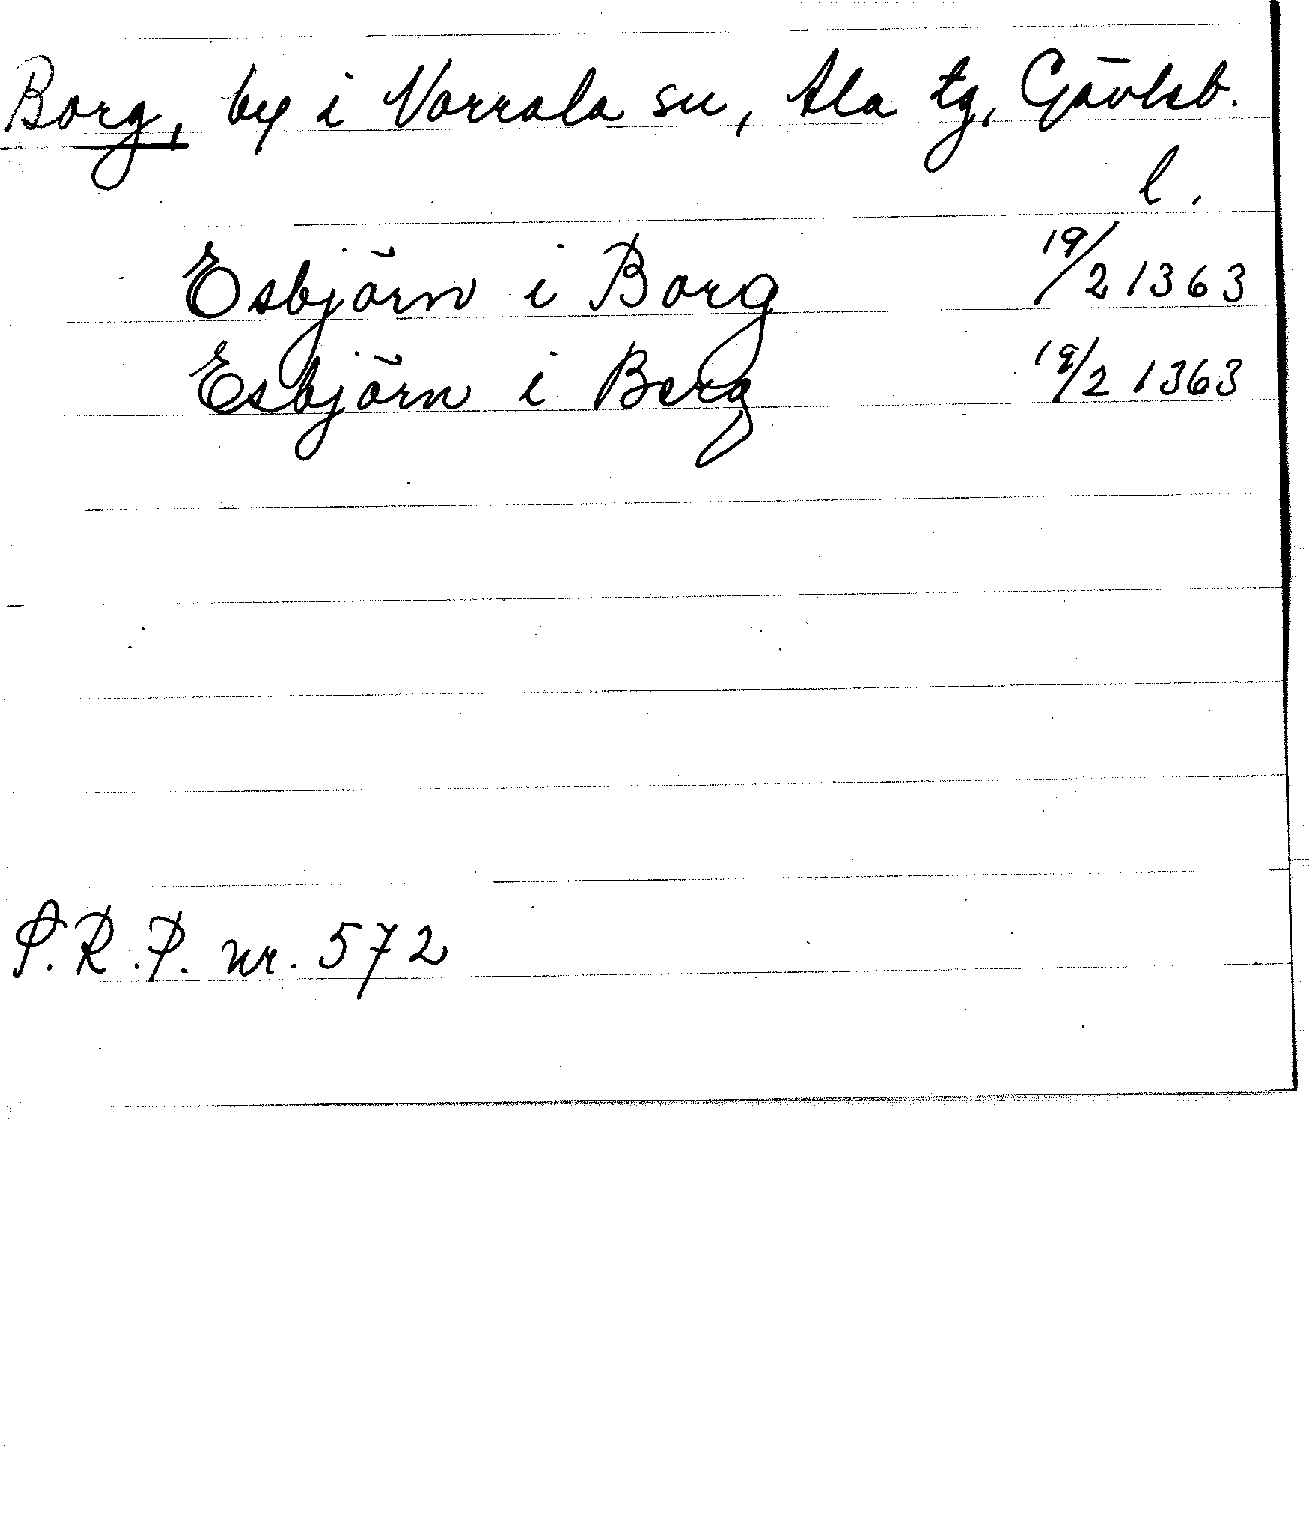 Borg, by i Norrala sn, Ala tg, Gävleb.
l.
Esbjörn i Borg 19/2 1363
Esbjörn i Berg 19/2 1363
S.R.P. nr. 572